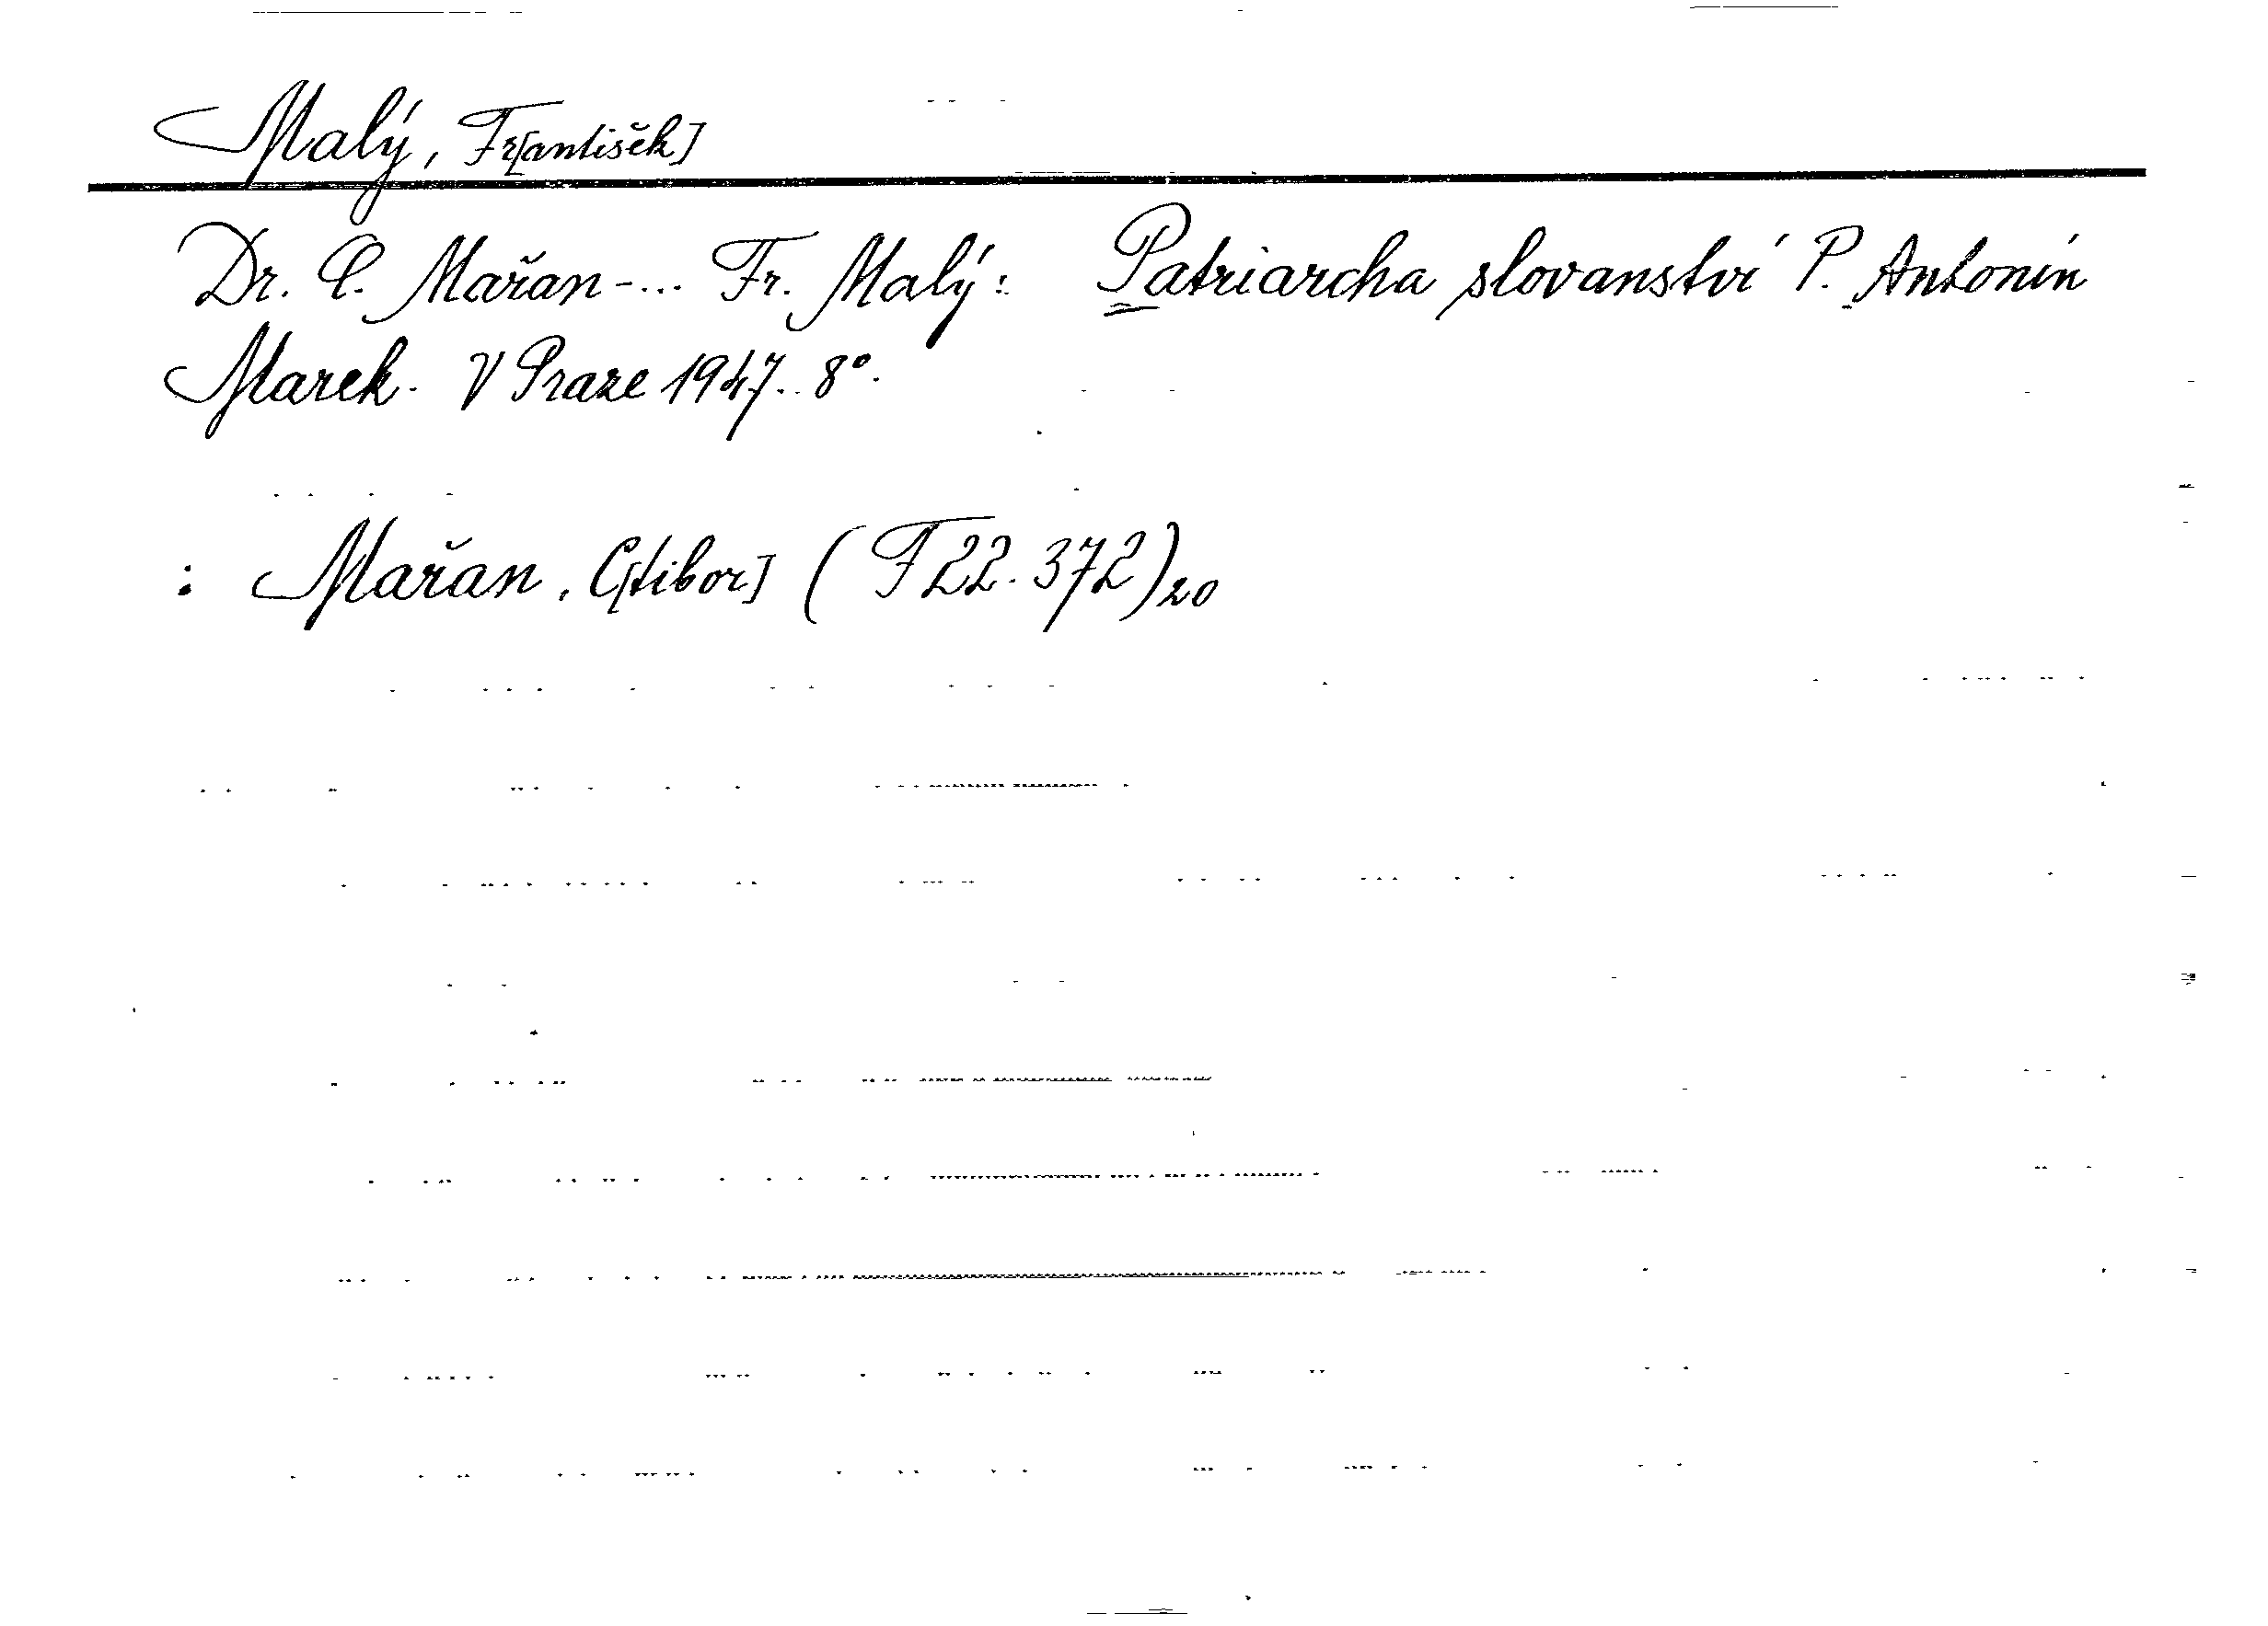 Malý, Fr[antišek]
Dr. C. Mařan-... Fr. Malý: Patriarcha slovanství P. Antonín
Marek. V Praze 1947. 8°.
: Mařan, C[tibor] (F 22.372)20